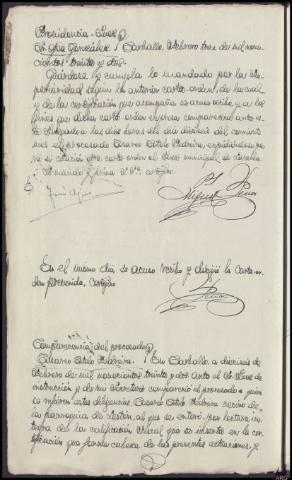 Providencia-Juez
Sr. Glez. González. / Carballo, Febrero trece de mil nove-
cientos treinta y dos.
Guárdese y cumpla lo mandado por la Su-
perioridad según la anterior carta orden, de la cual
y de la certificación que acompaña se acuse recibo, y a los
fines que dicha carta orden expresa comparezca ante es-
te Juzgado a las diez horas del día dieciseis del corriente
mes el procesado Casaro Cotelo
su citación otra carta orden al Juez municipal de
Lo mandó y firma S.Sª. certifico
Miguel
En el mismo día, se acusó recibo y dirigió la carta or-
den prevenida, certifico
Comparecencia del procesado
Casaro Cotelo / En Carballo a dieciseis de
Febrero de mil novecientos treinta y dos ante el Sr. Juez de
instrucción y de mi Secretario compareció el procesado a quien
se refieren estas diligencias Casaro Cotelo vecino de
la parroquia de al que se enteró por lectura ín-
tegra de la calificación fiscal que se inserta en la cer-
tificación que forma cabeza de las presentes actuaciones, y